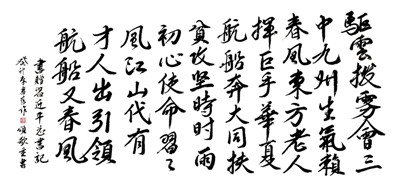 驅雲撥霧會三
中九州生氣賴
春風東方老人
揮巨手華夏
航船奔大同扶
貧攻坚時時雨
初心使命習〻
風江山代有
才人出引領
航船又春風
書贈習近平总書記
癸卯春月作頌歌並書